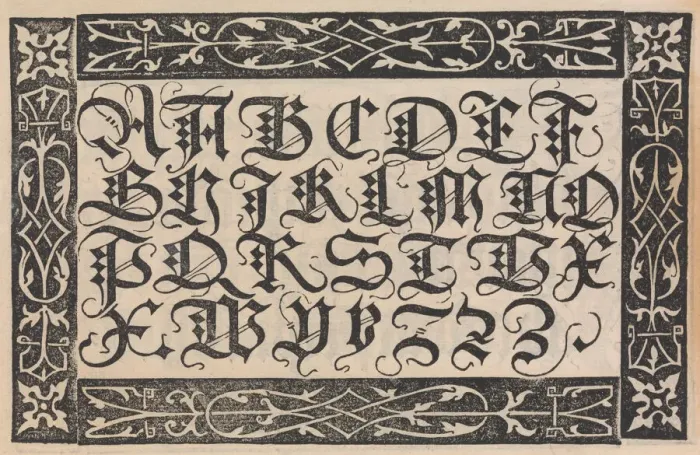 A A B C D E F
G H I K L M N O
P Q R S T V X
X W Y Y Z Z Z